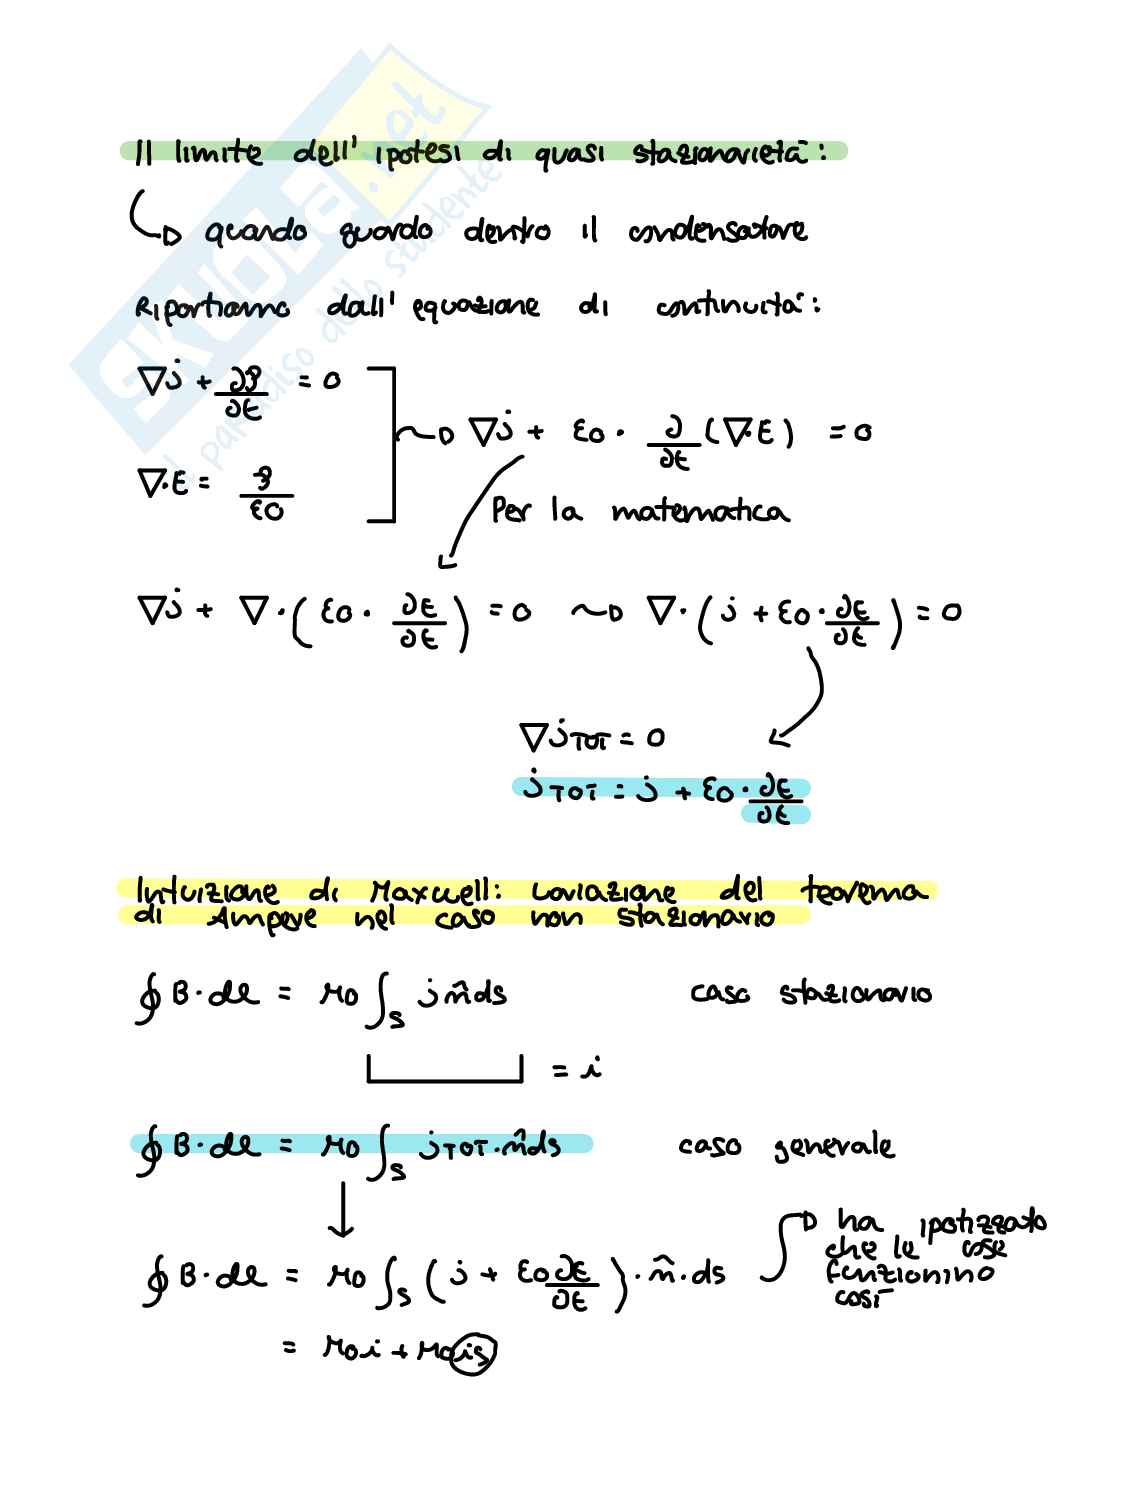 Il limite dell' ipotesi di quasi stazionarietà:
quando guardo dentro il condensatore
Ripartiamo dall' equazione di continuità:
∇j + ∂ρ/∂t = 0
∇j + ε0 · ∂/∂t (∇·E) = 0
∇·E = ρ/ε0
Per la matematica
∇j + ∇·(ε0 · ∂E/∂t) = 0 ∇·(j + ε0 · ∂E/∂t) = 0
∇jTOT = 0
jTOT = j + ε0 · ∂E/∂t
Intuizione di Maxwell: variazione del teorema
di Ampere nel caso non stazionario
∮ B · dl = μ0 ∫S j n̂ ds caso stazionario
= i
∮ B · dl = μ0 ∫S jTOT · n̂ ds caso generale
ha ipotizzato
che le cose
funzionino
così
∮ B · dl = μ0 ∫S (j + ε0 ∂E/∂t) · n̂ · ds
= μ0 i + μ0 is
SKUOLA.net
il paradiso dello studente